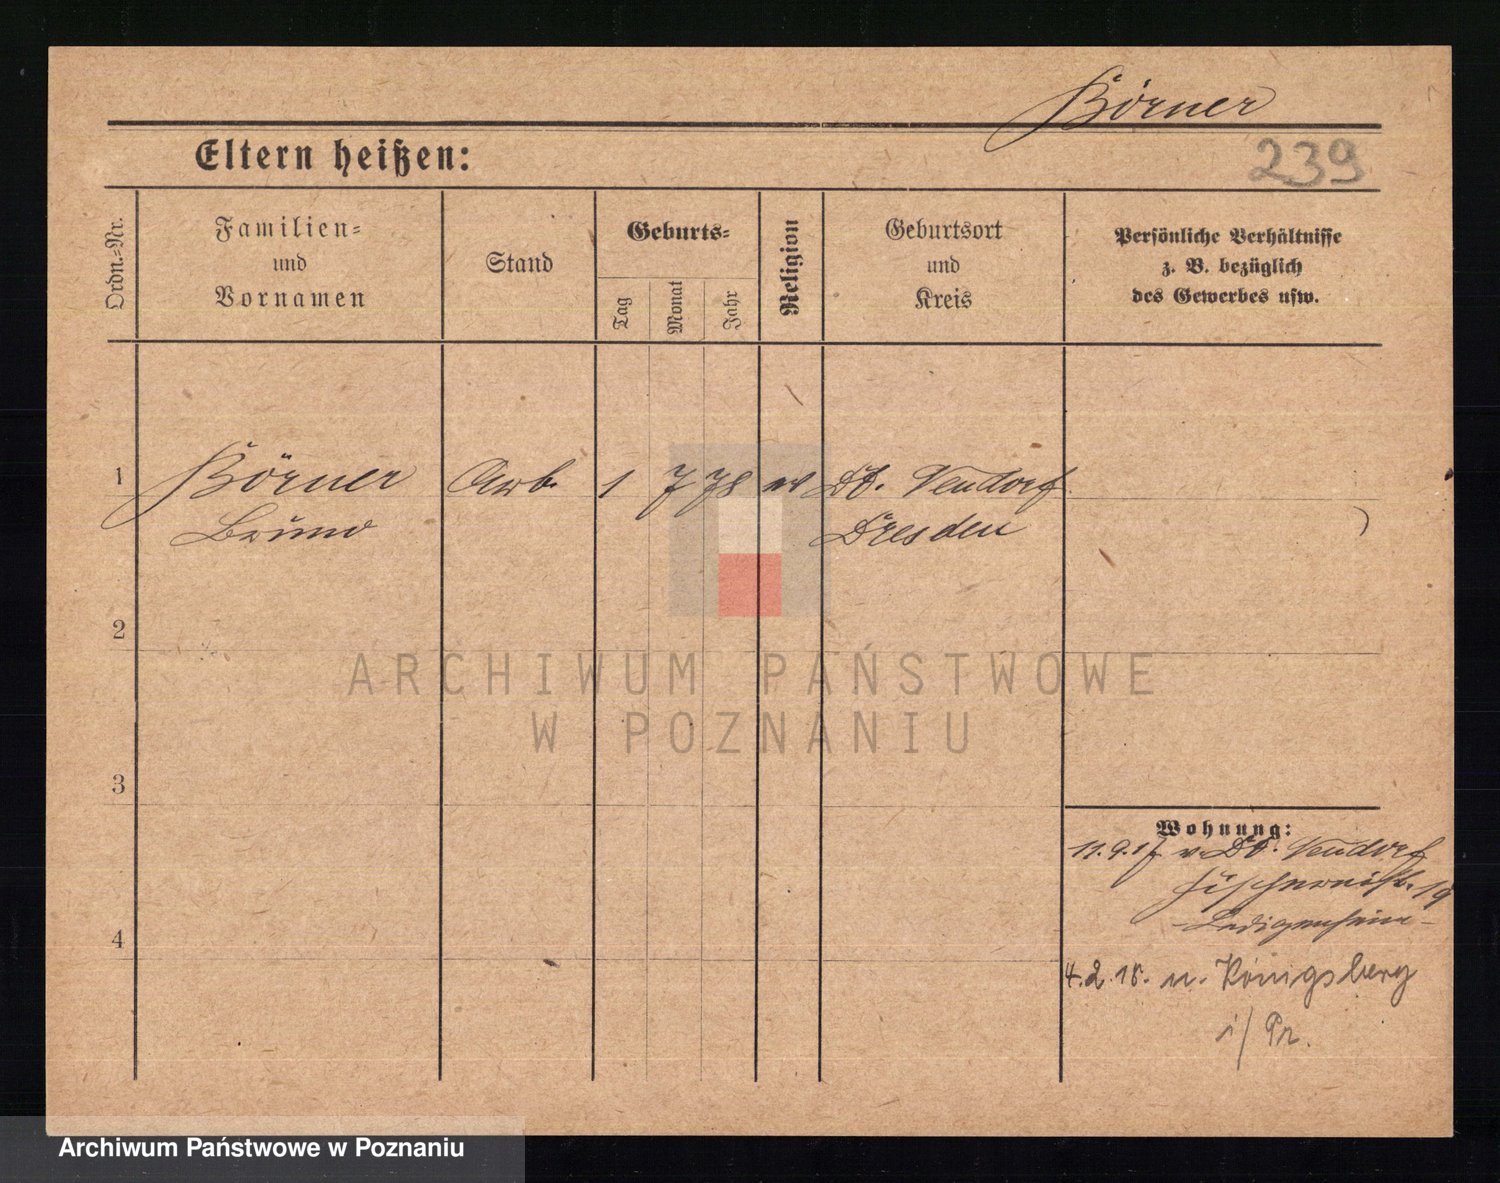 Börner
Eltern heißen:
239
Ordn.=Nr.
Familien=
und
Vornamen
Stand
Geburts=
Tag
Monat
Jahr
Religion
Geburtsort
und
Kreis
Persönliche Verhältnisse
z. B. bezüglich
des Gewerbes usw.
1 Börner Arb. 1 7 78 ev Dt. Neudorf
Bruno Dresden
2
3
4
Wohnung:
11.9.17 v. Dt. Neudorf
19
-Ledigenheim-
4.2.18. n. Königsberg
i/Pr.
ARCHIWUM PAŃSTWOWE
W POZNANIU
Archiwum Państwowe w Poznaniu